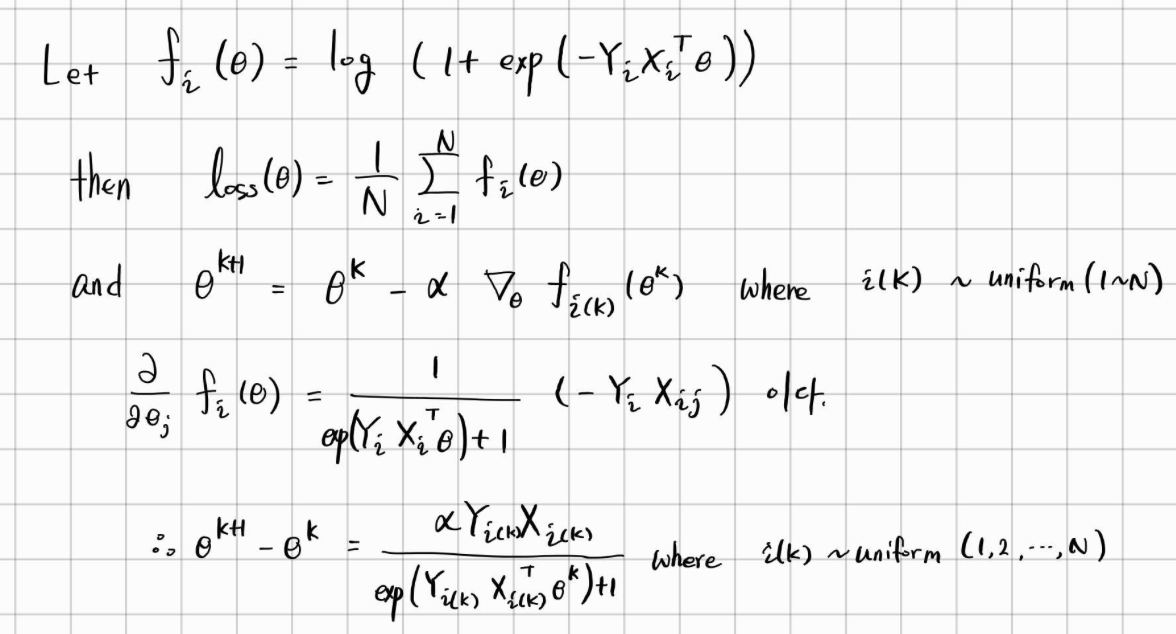 Let f_i(θ) = log (1+ exp(-Y_i X_i^T θ))
then loss(θ) = 1/N Σ_{i=1}^{N} f_i(θ)
and θ^{k+1} = θ^k - α ∇_θ f_{i(k)}(θ^k) where i(k) ~ uniform(1~N)
∂/∂θ_j f_i(θ) = 1/(exp(Y_i X_i^T θ)+1) (-Y_i X_{ij}) 이다.
∴ θ^{k+1} - θ^k = αY_{i(k)}X_{i(k)}/(exp(Y_{i(k)} X_{i(k)}^T θ^k)+1) where i(k) ~ uniform (1,2,⋯,N)